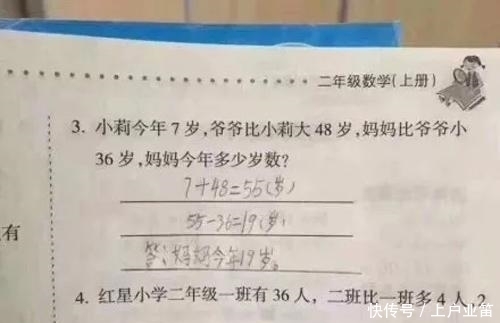 二年级数学(上册)
3. 小莉今年7岁,爷爷比小莉大48岁,妈妈比爷爷小
36岁,妈妈今年多少岁数?
7+48=55(岁)
55-36=19(岁)
答:妈妈今年19岁。
有
4. 红星小学二年级一班有36人,二班比一班多4人,2
快传号/上户业笛